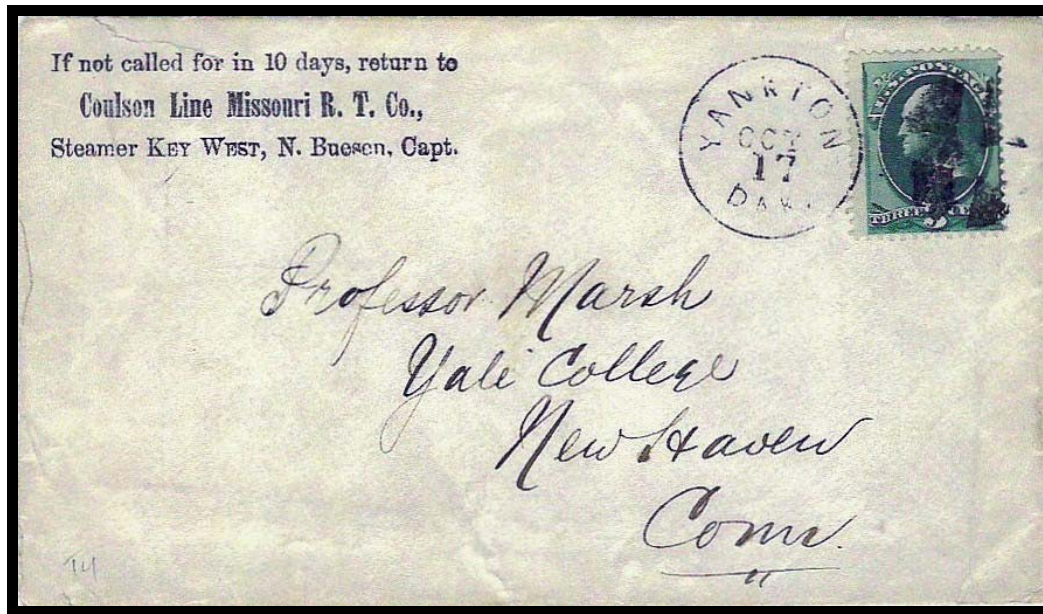 If not called for in 10 days, return to
Coulson Line Missouri R. T. Co.,
Steamer KEY WEST, N. Buesen, Capt.
YANKTON
OCT
17
DAK.
U.S. POSTAGE
THREE
Professor Marsh
Yale College
New Haven
Conn.